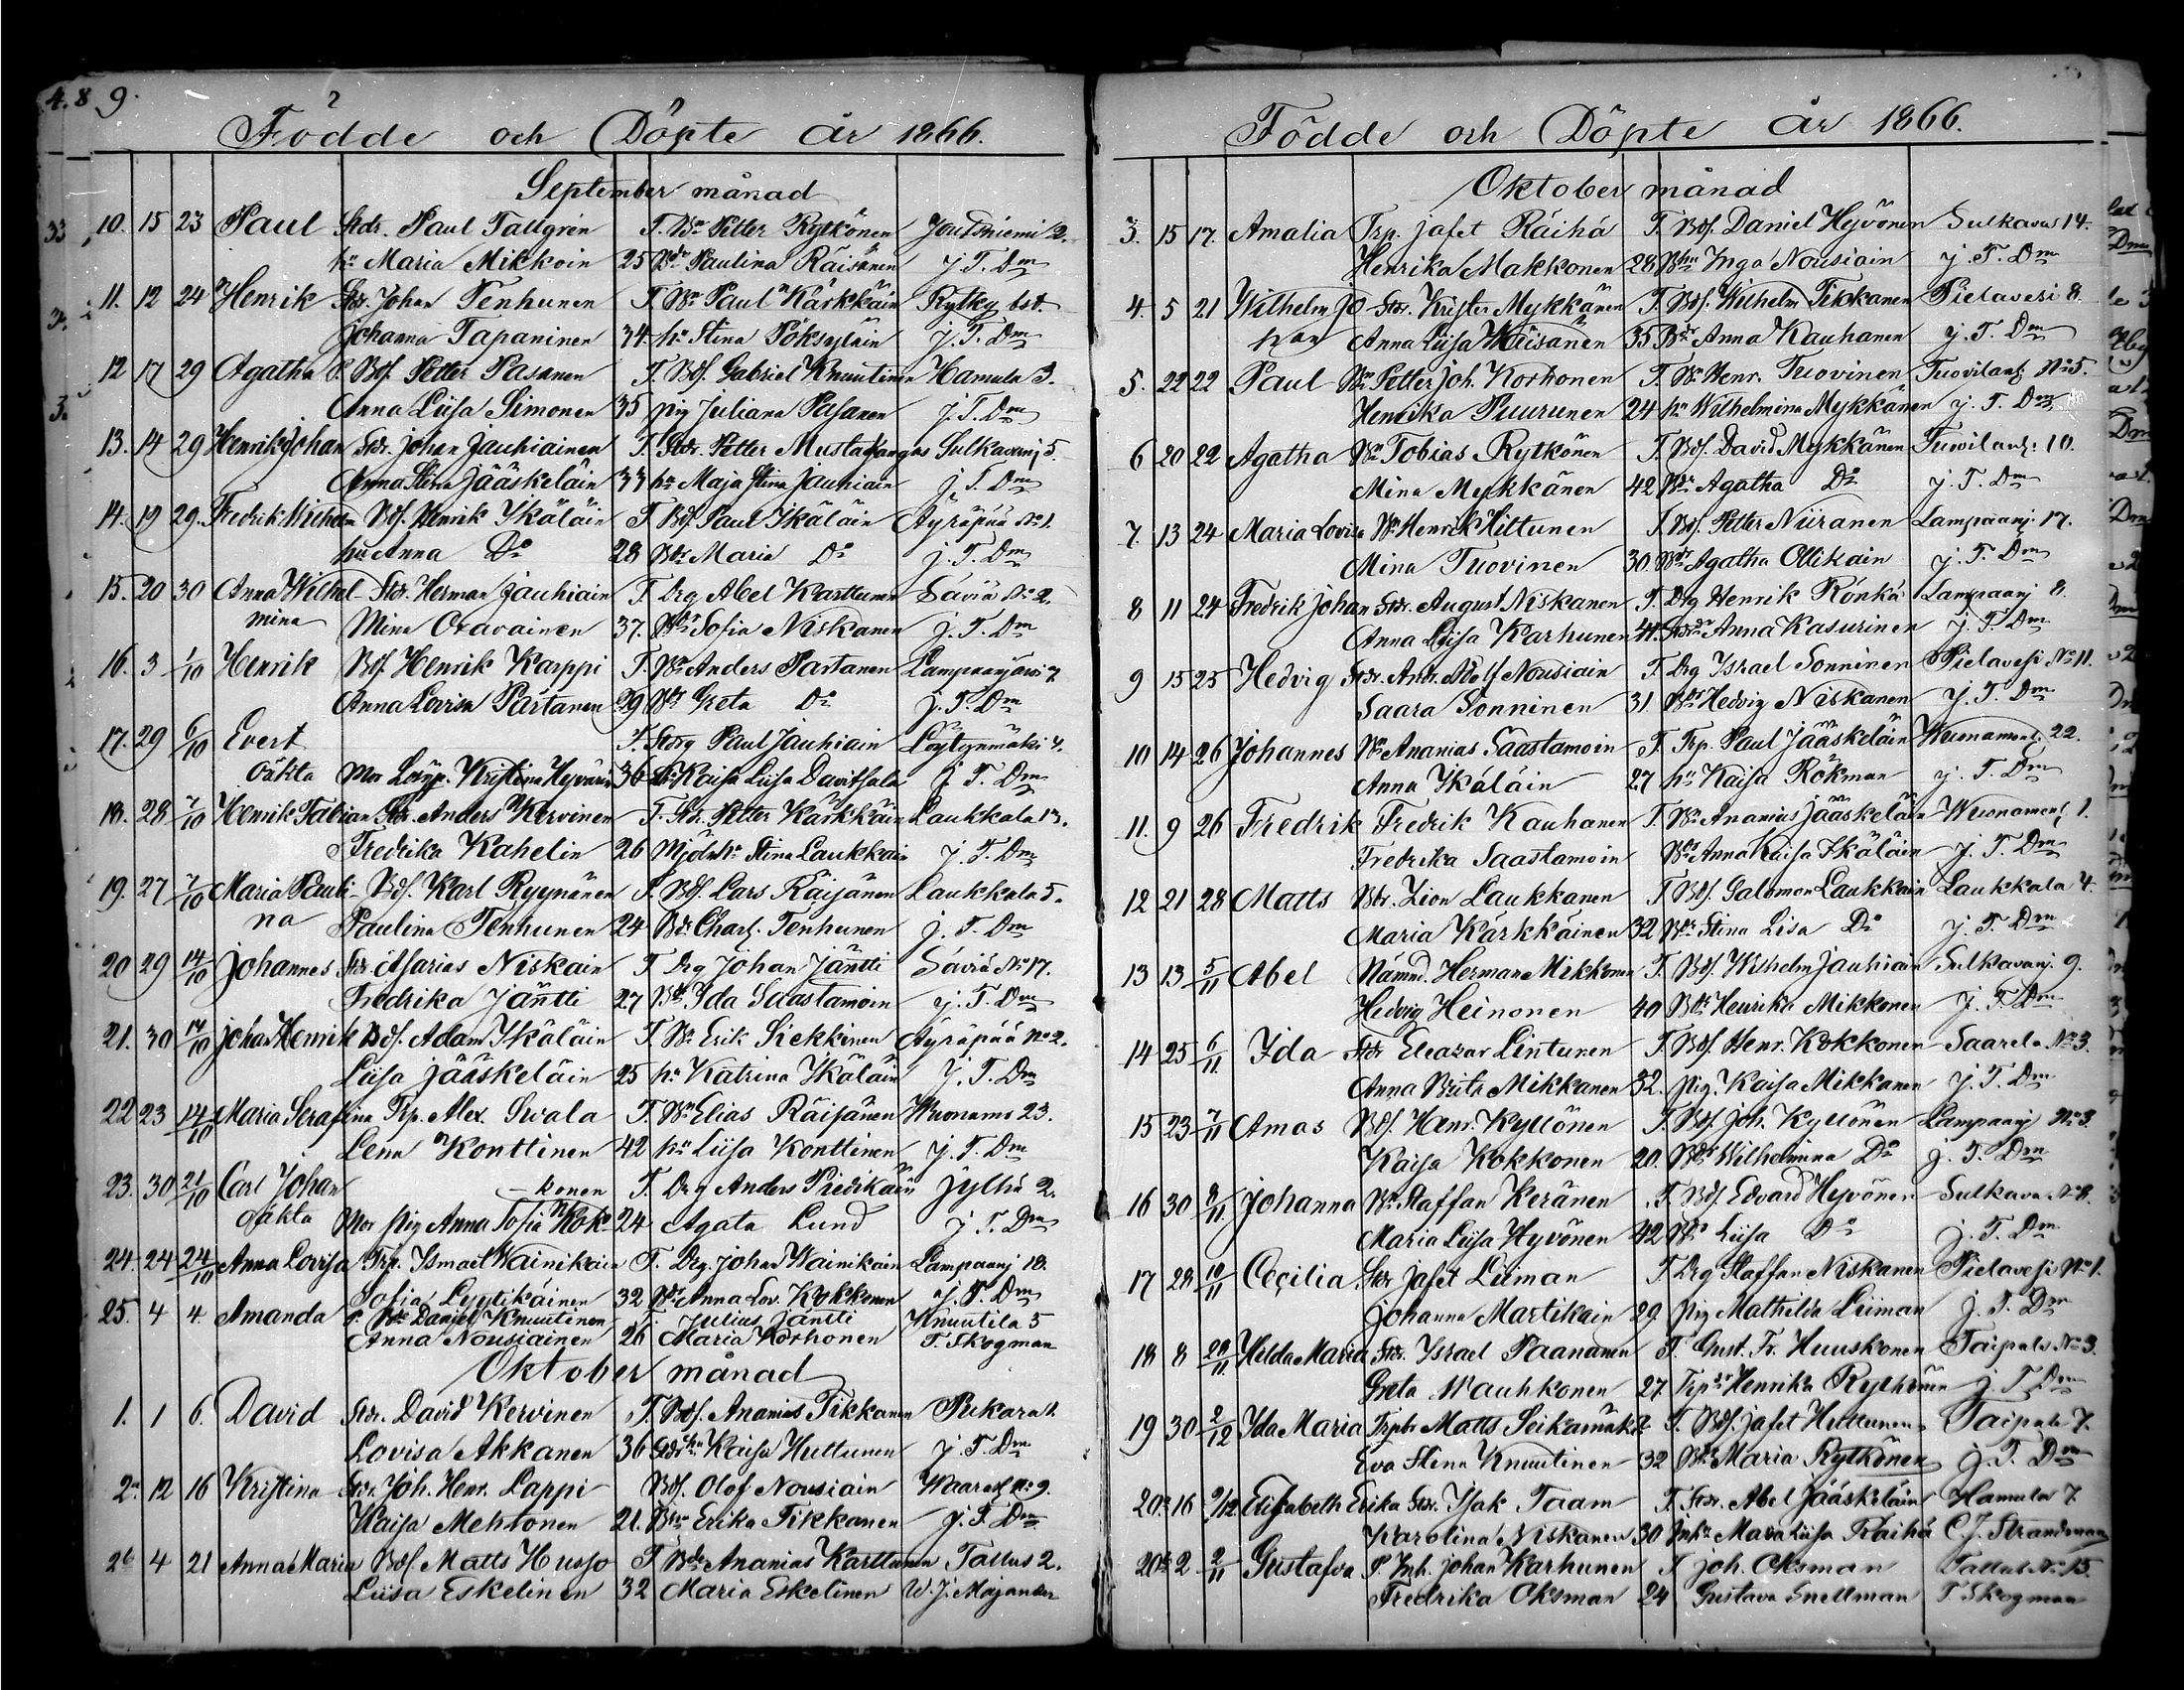 4.8 9.
Födde och Döpte år 1866.
September månad
10. 15 23 Paul Stdr. Paul Tallgrén T. Bn Petter Rytkönen Jautsniemi 2.
hu Maria Mikkoin 25 Bdr Paulina Räisänen J. T. Dm
11. 12 24 Henrik Str. Johan Tenhunen T. Bn Paul Kärkkäin Rytky bst.
Johanna Tapaninen 34. hu Stina Pöksyläin J. T. Dm
12 17 29 Agatha S. Bdf. Petter Pasanen T. Bdf. Gabriel Knuutinen Hamula 3.
Anna Liisa Simonen 35 pig Juliana Pasanen J. T. Dm
13. 14 29 Henrik Johan Stdr. Johan Jauhiainen T. Stdr. Petter Mustakangas Sulkavanj 5.
Anna Stina Jääskeläin 33 hu Maja Stina Jauhiain J. T. Dm
14. 19 29. Fredrik Wilhelm Bdf. Henrik Ikäläin T Bdf. Paul Ikäläin Äyräpää No 1.
hu Anna Do 28 Bdr Maria Do J. T. Dm
15. 20 30 Anna Wilhel- Stdr. Herman Jauhiain T. Drg Abel Karttunen Säviä No 2.
mina Mina Oravainen 37. Bdr Sofia Niskanen J. T. Dm
16. 3 1/10 Henrik Bdf. Henrik Karppi T. Bn Anders Partanen Lampaanjärvi 7
Anna Lovisa Partanen 29 Bdr Greta Do J. T. Dm
17. 29 6/10 Evert T. Stdrg Paul Jauhiain Löytynmäki 4.
oäkta Mor Lösp. Kristina Hyvärin 36 hu Kaisa Liisa Davitsala J. T. Dm
18. 28 7/10 Henrik Fabian Str. Anders Kervinen T. Str. Petter Kärkkäin Laukkala 13.
Fredrika Kahelin 26 Mjölnhu Stina Laukkain J. T. Dm
19. 27 7/10 Maria Pauli- Bdf. Karl Ryynänen T. Bdf. Lars Räijänen Laukkala 5.
na Paulina Tenhunen 24 Bdr Charl. Tenhunen J. T. Dm
20 29 14/10 Johannes Str Asarias Niskain T Drg Johan Jäntti Säviä No 17.
Fredrika Jäntti 27 Bdr Ida Saastamoin J. T. Dm
21. 30 14/10 Johan Henrik Bdf. Adam Ikäläin T. Bn Erik Siekkinen Äyräpää No 2.
Liisa Jääskeläin 25 hu Katrina Ikäläin J. T. Dm
22 23 14/10 Maria Serafina Trp. Alex. Swala T. Bn Elias Räijänen Wuonamo 23.
Lena Konttinen 42 hu Liisa Konttinen J. T. Dm
23. 30 21/10 Carl Johan -konen T. Drg Anders Piedikäin Jylhä 2.
oäkta Mor pig Anna Sofia Kok- 24 Agata Lund J. T. Dm
24. 24 24/10 Anna Lovisa Trp. Ismael Wainikain T. Drg. Johan Wainikain Lampaanj 18.
Sofia Lyytikäinen 32 Bdr Anna Lov. Kokkonen J. T. Dm
25. 4 4. Amanda S. Bdr Daniel Knuutinen T. Julius Jäntti Knuutila 5
Anna Nousiainen 26 Maria Korhonen T. Skogman
Oktober månad
1. 1 6. David Stdr. David Kervinen T. Bdf. Ananias Tikkanen Pukara 1.
Lovisa Akkanen 36 Stdrhu Kaisa Huttunen J. T. Dm
2a 12 16 Kristina Stdr. Joh. Henr. Lappi Bdf. Olof Nousiain Waarasl. No 9.
Kaisa Mehtonen 21. Bhu Erika Tikkanen J. T. Dm
2b 4 21 Anna Maria Bdf. Matts Husso T Bdr Ananias Karttunen Tallus 2.
Liisa Eskelinen 32 Maria Eskelinen W. J. Majander
Födde och Döpte år 1866.
Oktober månad
3. 15 17. Amalia Trp. Jafet Räihä T. Bdf. Daniel Hyvönen Sulkava 14.
Henrika Makkonen 28 Bhu Inga Nousiain J. T. Dm
4. 5 21 Wilhelm Jo- Stdr. Krister Mykkänen T. Bdf. Wilhelm Tikkanen Pielavesi 8.
han Anna Liisa Wäisänen 35 Bdr Anna Kauhanen J. T. Dm
5. 22 22 Paul Bn Petter Joh. Korhonen T. Bn Henr. Tuovinen Tuovilanl. No 5.
Henrika Puurunen 24 hu Wilhelmina Mykkänen J. T. Dm
6 20 22 Agatha Bn Tobias Rytkönen T. Bdf. David Mykkänen Tuovilanl: 10.
Mina Mykkänen 42 Bdr Agatha Do J. T. Dm
7. 13 24 Maria Lovisa Bn Henrik Hiltunen T. Bdf. Petter Niiranen Lampaanj. 17.
Mina Tuovinen 30. Bdr Agatha Ollikain J. T. Dm
8 11 24 Fredrik Johan Stdr. August Niskanen T. Drg Henrik Rönkä Lampaanj 8.
Anna Liisa Karhunen 41. Stdr Anna Kasurinen J. T. Dm
9 15 25 Hedvig Stdr. Andr. Adolf Nousiain T. Drg Israel Sonninen Pielavesi No 11.
Saara Sonninen 31. Bdr Hedvig Niskanen J. T. Dm
10 14 26 Johannes Bn Ananias Saastamoin T. Trp. Paul Jääskeläin Wuonamonl. 22.
Anna Ikäläin 27 hu Kaisa Rökman J. T. Dm
11. 9 26 Fredrik Fredrik Kauhanen T. Bn Ananias Jääskeläin Wuonamonl 1.
Fredrika Saastamoin Bdr Anna Kaisa Ikäläin J. T. Dm
12 21 28 Matts Bdr. Zion Laukkanen T Bdf. Salomon Laukkain Laukkala 4.
Maria Kärkkäinen 32 Bdr Stina Lisa Do J. T. Dm
13 13 5/11 Abel Nämnd. Herman Mikkonen T. Bdf. Wilhelm Jauhiain Sulkavanj. 9.
Hedvig Heinonen 40 Bdr Henrika Mikkonen J. T. Dm
14 25 6/11 Ida Stdr Eleazar Lintunen T. Bdf. Henr. Kokkonen Saarela No 3.
Anna Brita Mikkanen 32. pig. Kaisa Mikkanen J. T. Dm
15 23 7/11 Amos Bdf. Henr. Kyllönen T. Bdf. Joh. Kyllönen Lampaanj No 3.
Kaisa Kokkonen 20. Bdr Wilhelmina Do J. T. Dm
16 30 8/11 Johanna Bn Staffan Keränen T Bdf. Edvard Hyvönen Sulkava No 8.
Maria Liisa Hyvönen 42 Bdr Liisa Do J. T. Dm
17 28 10/11 Cecilia Stdr Jafet Liiman T. Drg Staffan Niskanen Pielavesi No 1.
Johanna Martikain 29. pig Mathilda Liiman J. T. Dm
18 8 20/11 Hilda Maria Stdr. Israel Paananen T. Gust. Fr. Huuskonen Taipale No 3.
Greta Wauhkonen 27. Trpdr Henrika Rytkönen J. T. Dm
19 30 2/12 Ida Maria Trph Matts Seikamäki T. Bdf. Jafet Huttunen Taipale 7.
Eva Stina Knuutinen 32 Bdr Maria Rytkönen J. T. Dm
20a 16 9/12 Elisabeth Erika Stdr. Isak Taam T. Stdr. Abel Jääskeläin Hamula 7.
Karolina Niskanen 30 Inhu Maria Liisa Räihä C. J. Strandman
20b 2 2/11 Gustafva S. Inh. Johan Karhunen T Joh. Oksman Tallus No 15.
Fredrika Oksman 24 Gustava Snellman T Skogman